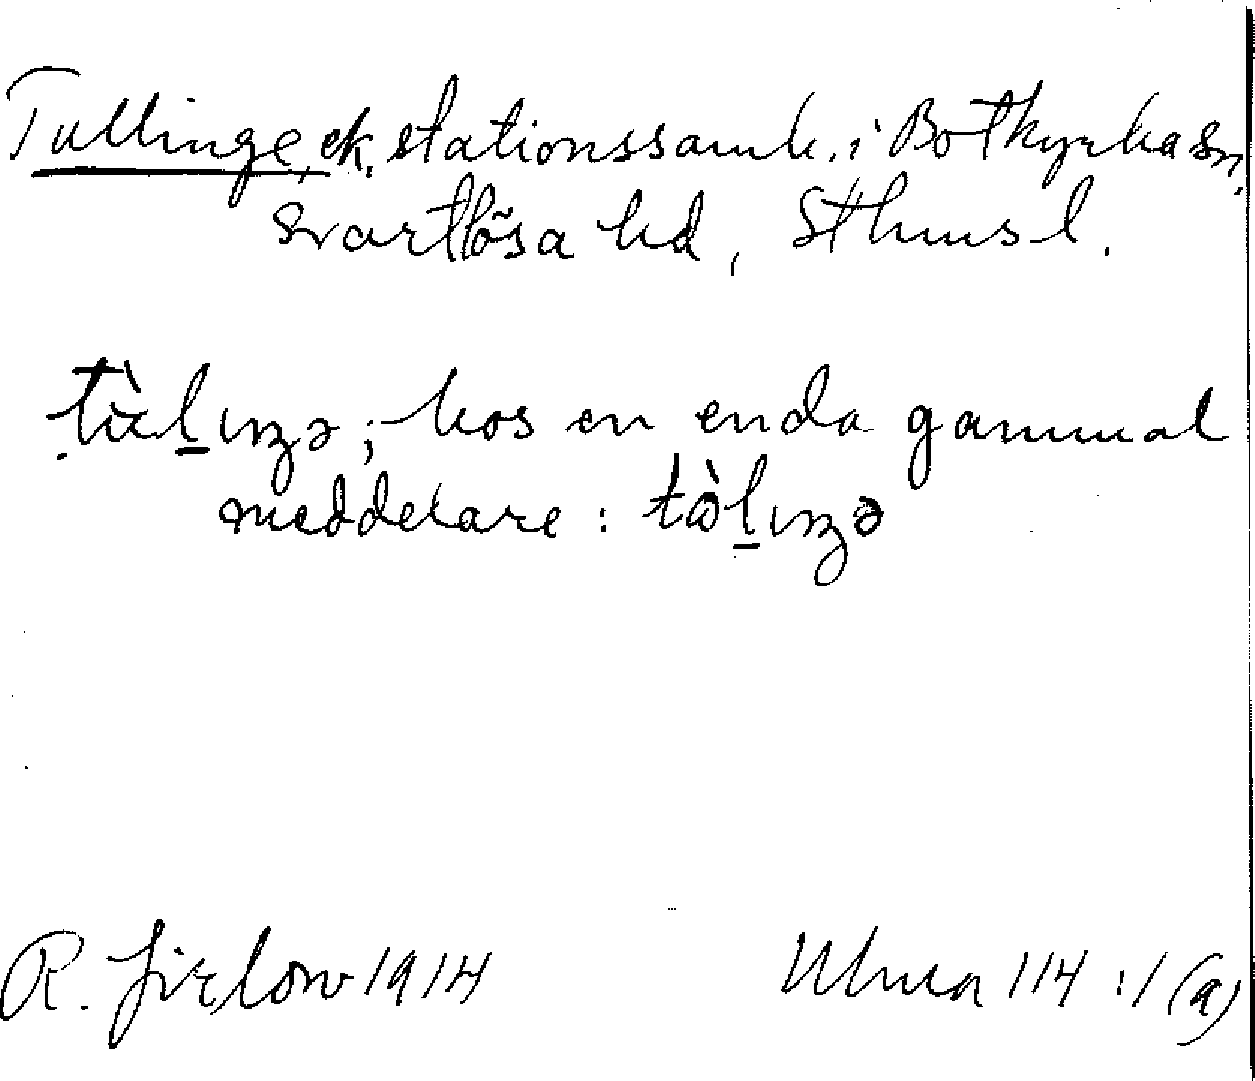 Tullinge, ek. stationssamh. i Botkyrka sn,
Svartlösa hd, Sthms l.
hos en enda gammal
meddelare:
R. Jirlow 1914
Ulma 114:1 (a)